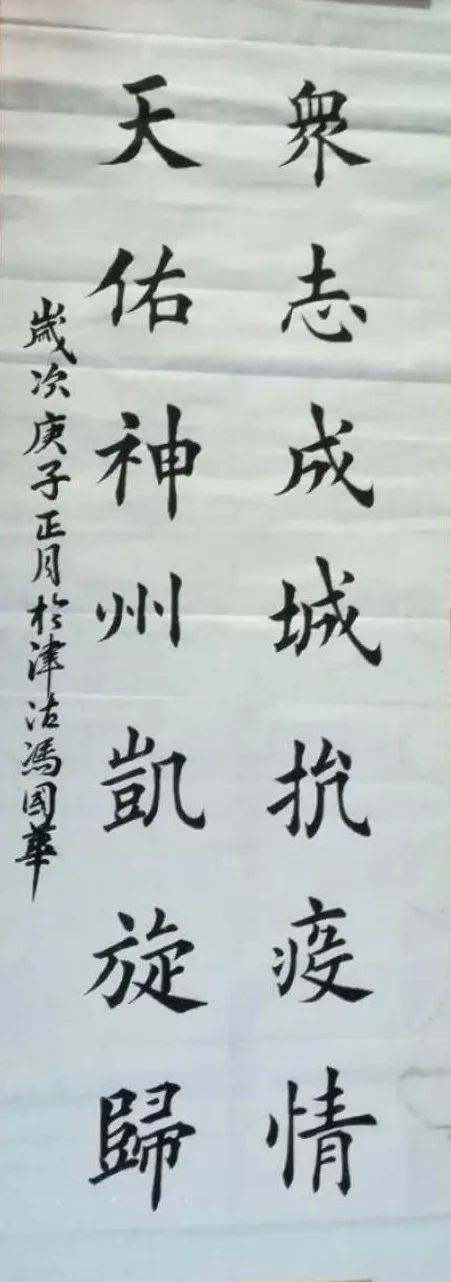 衆志成城抗疫情
天佑神州凱旋歸
歲次庚子正月於津沽馮国華